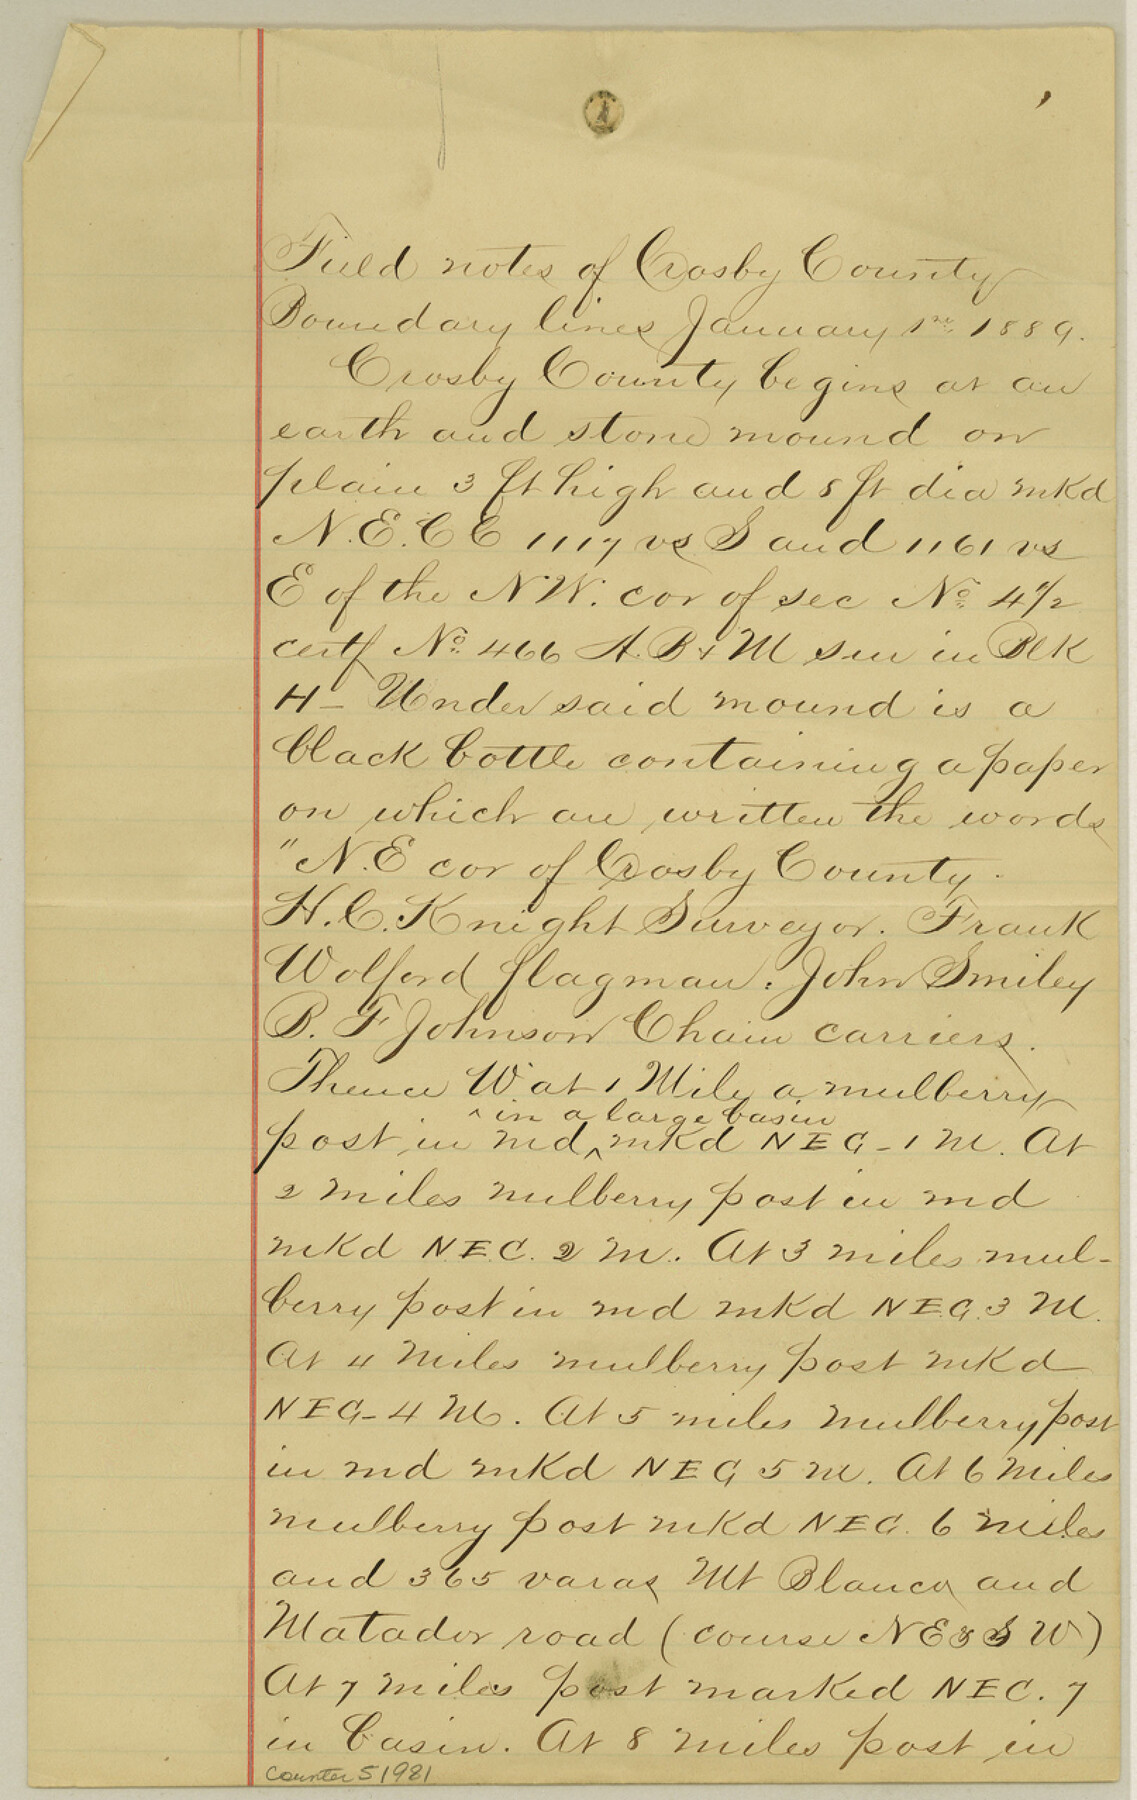 Field notes of Crosby County
Boundary lines January 1st 1889.
Crosby County begins at an
earth and stone mound on
plain 3 ft high and 8 ft dia mkd
N.E.C C 1117 vs S and 1161 vs
E of the N.W. cor of sec No. 4 1/2
certf No. 466 A.B & M sur in Blk
H - Under said mound is a
black bottle containing a paper
on which are written the words
"N.E cor of Crosby County.
H.C. Knight Surveyor. Frank
Wolford flagman. John Smiley
B. F Johnson Chain carriers.
Thence W at 1 Mile a mulberry
^ in a large basin
post in md ^ mkd NEC - 1 M. At
2 miles mulberry post in md
mkd N.E.C. 2 M. At 3 miles mul-
berry post in md mkd N.E.C. 3 M.
At 4 Miles mulberry post mkd
NEC - 4 M. At 5 miles mulberry post
in md mkd NEC 5 M. At 6 Miles
mulberry post mkd NEC. 6 miles
and 365 varas Mt Blanco and
Matador road (course NE & S W)
At 7 miles post marked NEC. 7
in basin. At 8 miles post in
counter 51981